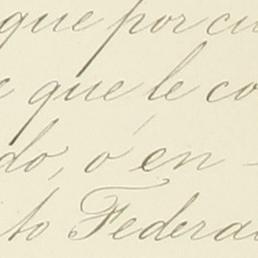 que por cu
e que le co
do, ó en -
to Federa